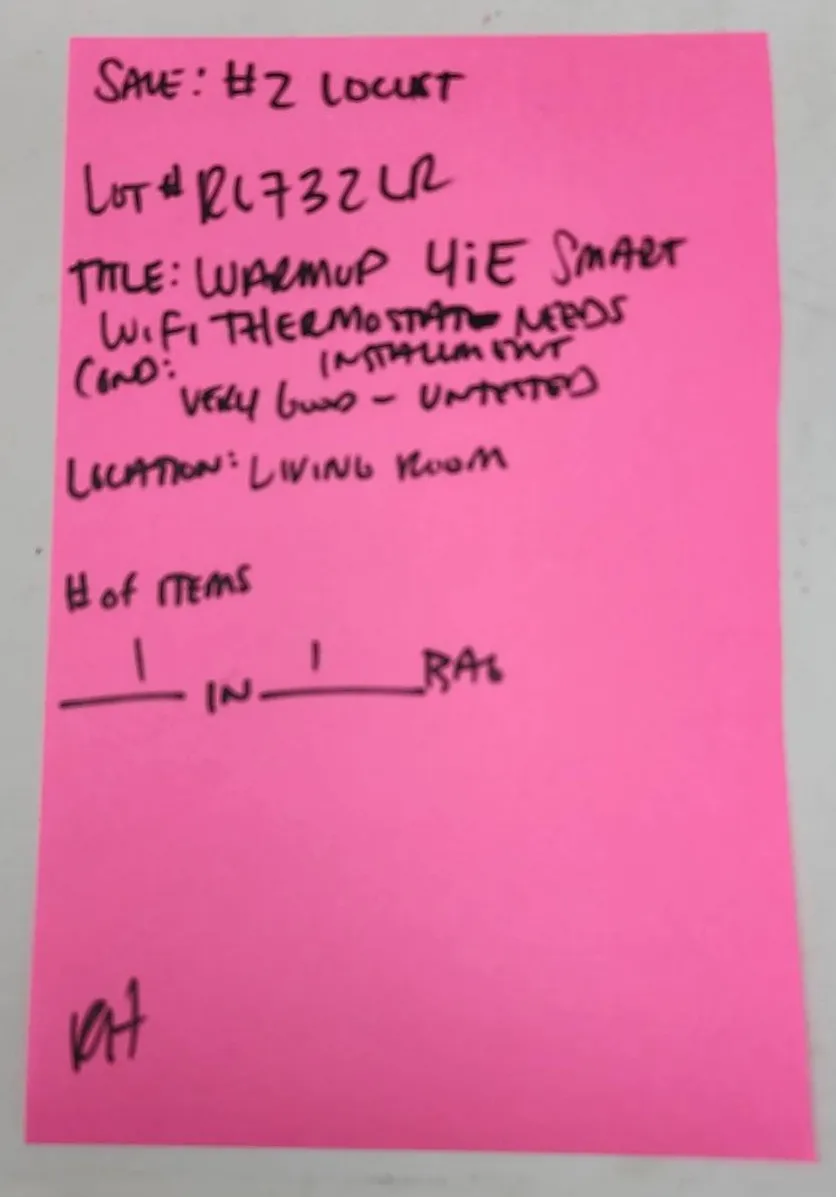 SALE: #2 LOCUST
LOT # RL732LR
TITLE: WARMUP 4iE SMART
WIFI THERMOSTAT NEEDS
INSTALLMENT
COND:
VERY GOOD - UNTESTED
LOCATION: LIVING ROOM
# of ITEMS
1 IN 1 BAG